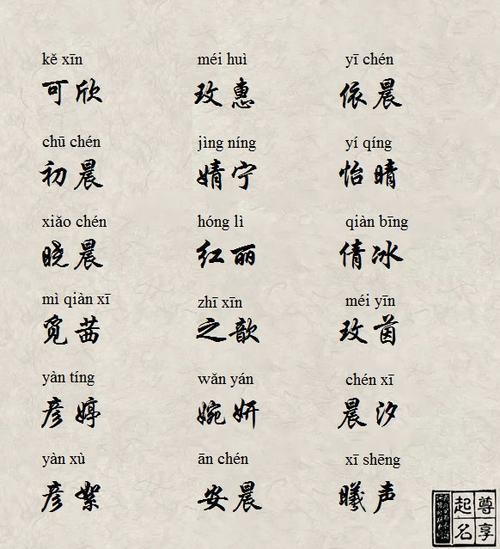 kě xīn méi huì yī chén
可欣 玫惠 依晨
chū chén jìng níng yí qíng
初晨 婧宁 怡晴
xiǎo chén hóng lì qiàn bīng
晓晨 红丽 倩冰
mì qiàn xī zhī xīn méi yīn
觅茜 之歆 玫茵
yàn tíng wǎn yán chén xī
彦婷 婉妍 晨汐
yàn xù ān chén xī shēng
彦絮 安晨 曦声
尊享
起名